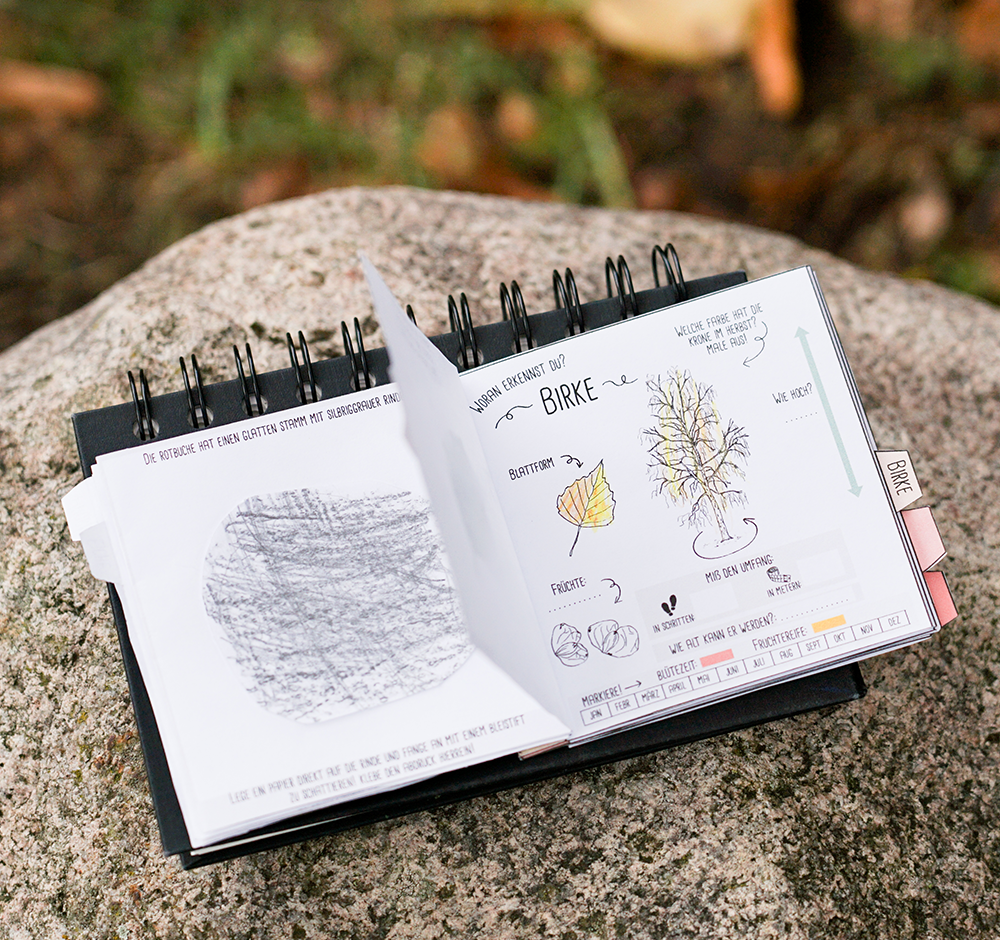 DIE ROTBUCHE HAT EINEN GLATTEN STAMM MIT SILBRIGGRAUER
LEGE EIN PAPIER DIREKT AUF DIE RINDE UND FANGE AN MIT EINEM BLEISTIFT
ZU SCHATTIEREN! KLEBE DEN ABDRUCK HIERREIN!
WORAN ERKENNST DU?
BIRKE
WELCHE FARBE HAT DIE
KRONE IM HERBST?
MALE AUS!
WIE HOCH?
BLATTFORM
BIRKE
FRÜCHTE:
MIß DEN UMFANG:
IN SCHRITTEN:
IN METERN:
WIE ALT KANN ER WERDEN?:
BLÜTEZEIT:
FRUCHTREIFE:
MARKIERE!
JAN FEBR MÄRZ APRIL MAI JUNI JULI AUG SEPT OKT NOV DEZ